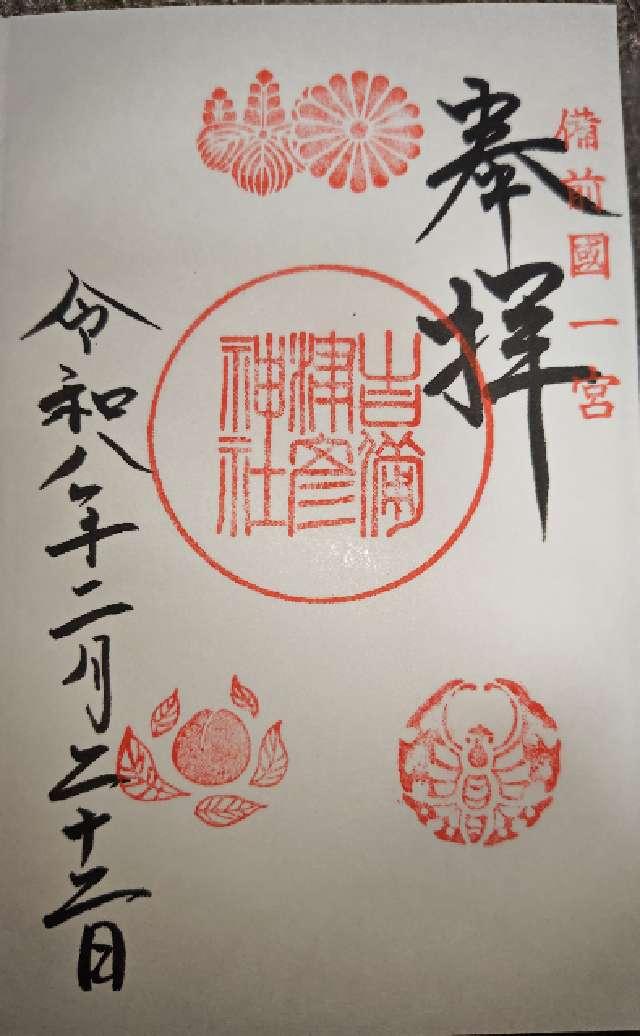 備前國一宮
奉拝
吉備
津彦
神社
令和八年二月二十二日